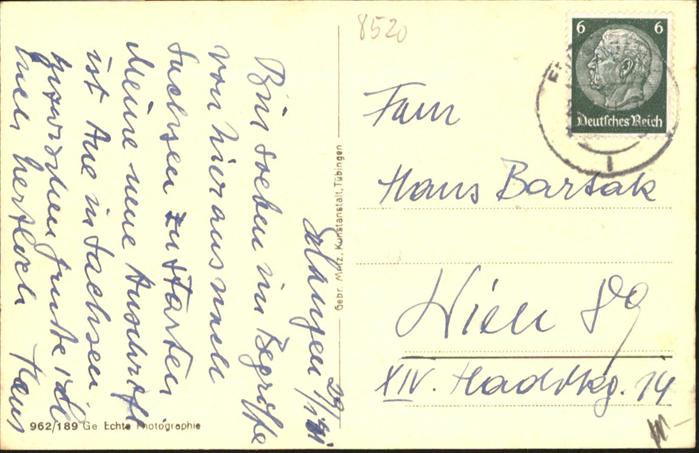 8520
6 6
Deutsches Reich
Fam
Hans Bartak
Wien 89
XIV. Hadikg. 14
29/
Bin soeben im Begriffe
von hier aus nach
Sachsen zu starten
Meine neue Anschrift
ist Aue in Sachsen
herzlich Hans
Gebr. Metz, Kunstanstalt, Tübingen
962/189 Ge Echte Photographie